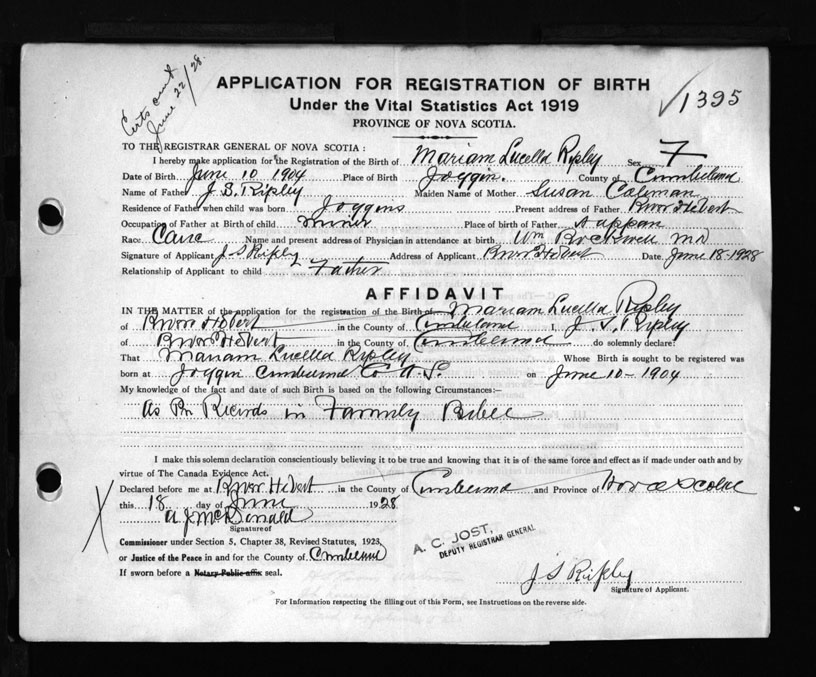 Certs sent
June 22/28.
APPLICATION FOR REGISTRATION OF BIRTH
Under the Vital Statistics Act 1919
PROVINCE OF NOVA SCOTIA.
1395
TO THE REGISTRAR GENERAL OF NOVA SCOTIA :
I hereby make application for the Registration of the Birth of Mariam Lucella Ripley Sex F
Date of Birth June 10 1904 Place of Birth Joggin. County of Cumberland
Name of Father J. S. Ripley Maiden Name of Mother Susan
Residence of Father when child was born Joggins Present address of Father River Hebert
Occupation of Father at Birth of child miner Place of birth of Father Nappan
Race Name and present address of Physician in attendance at birth Wm Rockwell MD
Signature of Applicant J S Ripley Address of Applicant River Hebert Date June 18-1928
Relationship of Applicant to child Father
AFFIDAVIT
IN THE MATTER of the application for the registration of the Birth of Mariam Lucella Ripley
of River Hebert in the County of Cumberland I, J. S. Ripley
of River Hebert in the County of Cumberland do solemnly declare:
That Mariam Lucella Ripley Whose Birth is sought to be registered was
born at Joggin Cumberland Co N.S. on June 10-1904
My knowledge of the fact and date of such Birth is based on the following Circumstances:—
As Per Records in Family Bible
I make this solemn declaration conscientiously believing it to be true and knowing that it is of the same force and effect as if made under oath and by
virtue of The Canada Evidence Act.
Declared before me at River Hebert in the County of Cumberland and Province of Nova Scotia
this 18 day of June 1928
A J McDonald
Signature of
Commissioner under Section 5, Chapter 38, Revised Statutes, 1923,
or Justice of the Peace in and for the County of Cumberland
If sworn before a Notary Public affix seal.
A. C. JOST,
DEPUTY REGISTRAR GENERAL
J S Ripley
Signature of Applicant.
For Information respecting the filling out of this Form, see Instructions on the reverse side.